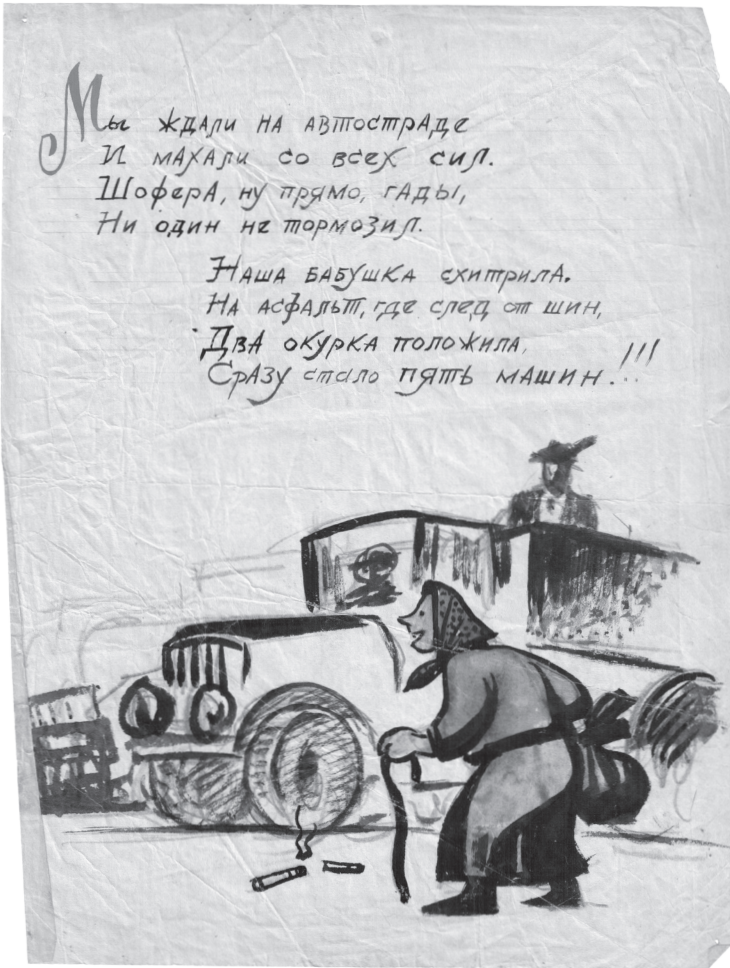 Мы ждали на автостраде
И махали со всех сил.
Шофера, ну прямо, гады,
Ни один не тормозил.
Наша бабушка схитрила.
На асфальт, где след от шин,
Два окурка положила,
Сразу стало пять машин...!!!